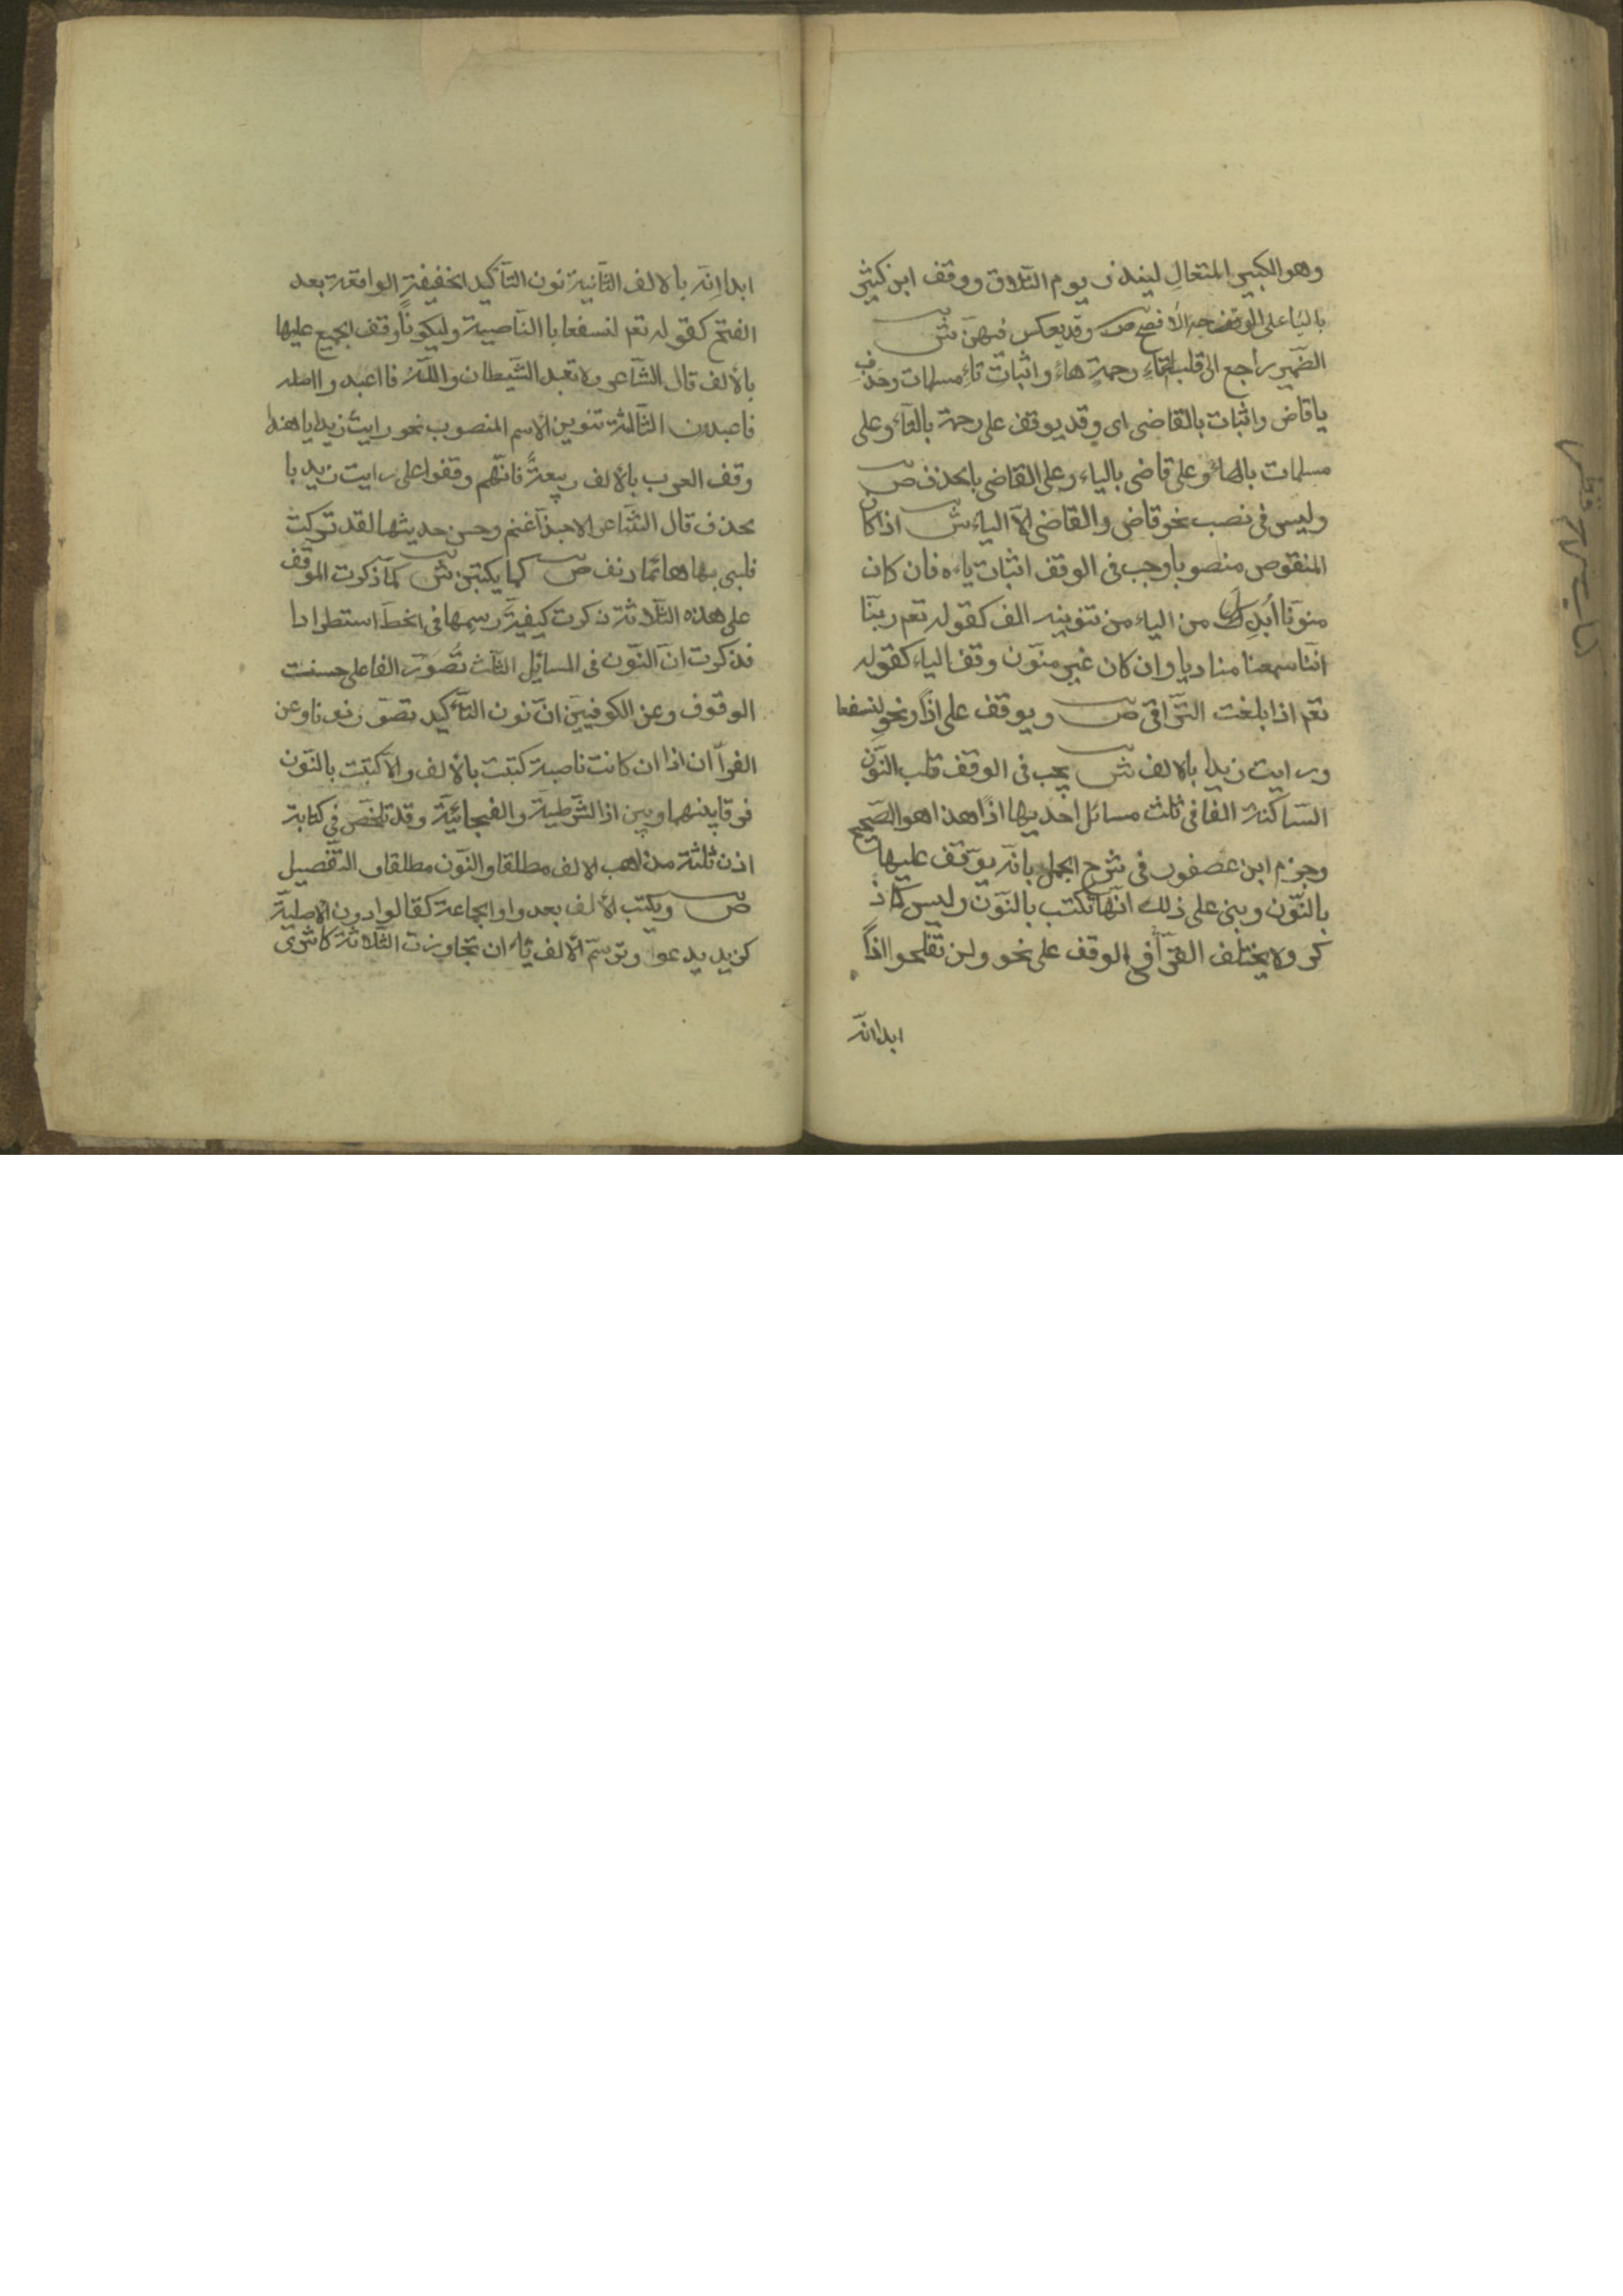 وهو الكبير المتعال لينذر يوم التلاق ووقف ابن كثير
بالياء على الوجه الافصح ص وقد يعكس فيهن ش
الضمير راجع الى قلب تاء رحمة هاء واثبات تاء مسلمات وحذف
ياقاض واثبات بالقاضى اى وقد يوقف على رحمة بالتاء وعلى
مسلمات بالهاء وعلى قاضى بالياء وعلى القاضى بالحذف ص
وليس فى نصب نحو قاضى والقاضى الا الياء ش اذا كان
المنقوص منصوبا وجب فى الوقف اثبات ياءه فان كان
منونا ابدل من الياء من تنوينه الف كقوله تعم ربنا
اننا سمعنا مناديا وان كان غير منون وقف الياء كقوله
تعم اذا بلغت التراقى ص ويوقف على اذًا ونحو لنسفعا
ورايت زيدا بالالف ش يجب فى الوقف قلب النون
الساكنة الفا فى ثلث مسائل احديها اذًا هذا هو الصحيح
وجزم ابن عصفور فى شرح الجمل بانه يوقف عليها
بالنون وبنى على ذلك انها تكتب بالنون وليس كما ذ
كر ولا يختلف القرآ فى الوقف على نحو ولن تفلحوا اذًا
ابدا انه
ابدا انه بالالف الثانية نون التاكيد الخفيفة الواقعة بعد
الفتح كقوله تعم لنسفعا باالناصية وليكونًا وقف الجميع عليها
بالالف قال الشاعر ولا تعبد الشيطان والله فااعبدوا اصله
فاعبدن الثالثة تنوين الاسم المنصوب نحو رايت زيدا ياهذا
وقف العرب بالالف ربيعة فانهم وقفوا على رايت زيد با
بحذف قال الشاعر الاحبذا غنم وحسن حديثها لقد تركت
قلبى بها هائما دنف ص كما يكتبن ش كما ذكرت الموقف
على هذه الثلاثة ذكرت كيفية رسمها فى الخط استطرادا
فذكرت ان النون فى المسائل الثلث تصور الفا على حسنت
الوقوف وعن الكوفيين ان نون التاكيد تصور نونا وعن
الفرآ ان اذا ان كانت ناصبة كتبت بالالف والا كتبت بالنون
فرقا بينهما وبين اذا الشرطية والفجائية وقد تلخص فى كتابة
اذن ثلثة مذاهب الالف مطلقا والنون مطلقا والتفصيل
ص ويكتب الالف بعد واو الجماعة كقالوا دون الاصلية
كزيد يدعوا وترسم الالف ياء ان تجاوزت الثلاثة كاشترى